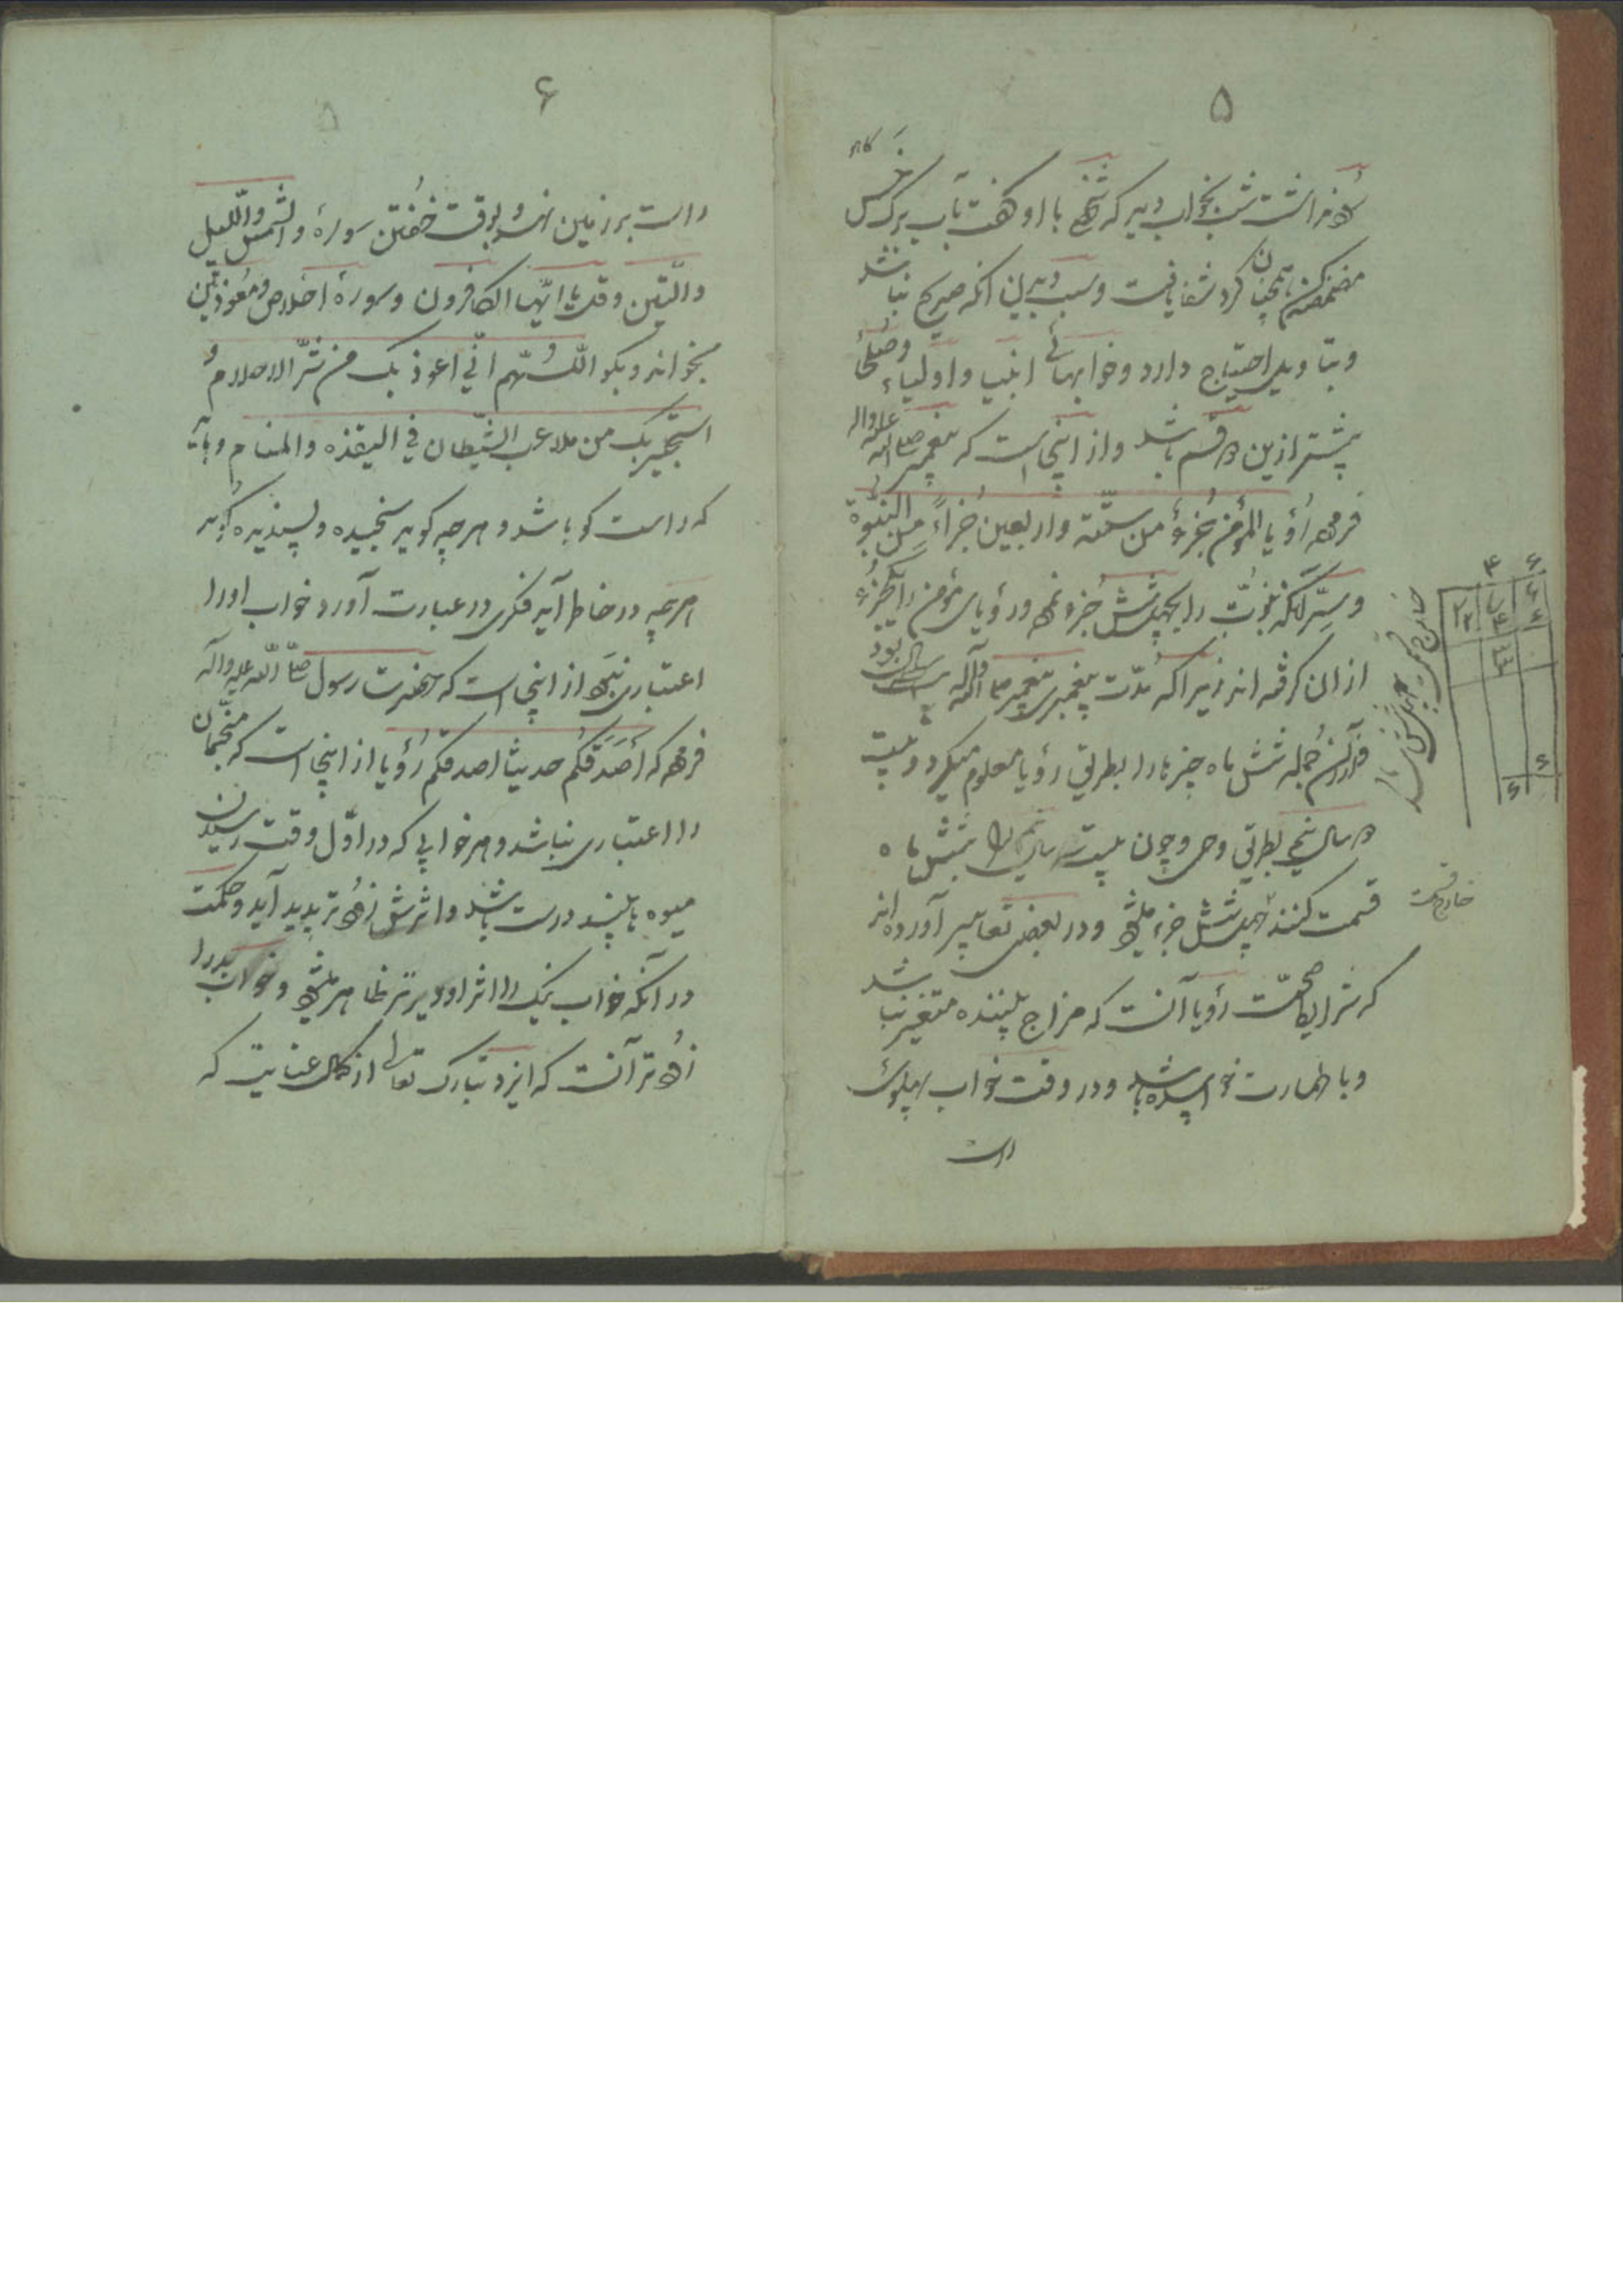 ۵
سرفه داشت شب بخواب دید که شخصی با او گفت بآب برگ خرس
مضمضه کن همچنان کرد شفا یافت و سبب دیدن آنکه صریح نباشد
و بتاویل احتیاج دارد و خوابهائی انبیا و اولیاء و صلحا
بیشتر ازین دو قسم باشد و از اینجاست که پیغمبر صلی الله علیه واله
فرموده رُؤیا المؤمن جُزءٌ من ستّة واربعین جُزاءً مِن النبوّة
و سِرّ آنکه نبوّت را بچهل و شش جُزو نموده و رؤیای مؤمن را یکجُزء
از ان گرفته اند زیرا که مُدّت پیغمبری پیغمبر ص وآله بیست سه سال بود
و در آن جُمله شش ماه چیزها را بطریق رؤیا معلوم میکرد و بیست
دو سال و نیم بطریق وحی و چون بیست سه سال را بشش ماه
قسمت کنند چهل و شش جزء میشود و در بعضی تعابیر آورده اند
که شرایط صحّت رؤیا آنست که مزاج بیننده متغیر نباشد
و با طهارت خوابیده باشد و در وقت خواب پهلوی
راست
خارج قسمت
۶
راست بر زمین نهد و بوقت خُفتن سورهٔ والشمس واللّیل
والتّین وقل یا ایّها الکافرون و سورهٔ اخلاص و مُعوّذتین
بخواند و بگو اللّهُمّ انّی اعوذ بک من شرّ الاحلام وُ
استجیر بک من ملاعب الشّیطان فی الیقذه والمنام و باید
که راست گو باشد و هرچه گوید سنجیده و پسندیده گوید
هرچه در خاطر آید فکری در عبارت آورد خواب او را
اعتباری نبود از اینجاست که حضرت رسول صلّی اللّه علیه واله
فرموده که أصدَقَکُم حدیثا اصدقکم رُؤیا از اینجاست که منجّمان
را اعتباری نباشد و هر خوابی که در اوّل وقت رسیدن
میوه ها بیند درست باشد و اثرش زودتر پدید آید و حکمت
در آنکه خواب نیک را اثر او دیرتر ظاهر میشود و خواب بد را
زودتر آنست که ایزد تبارک تعالی از کمال عنایت که